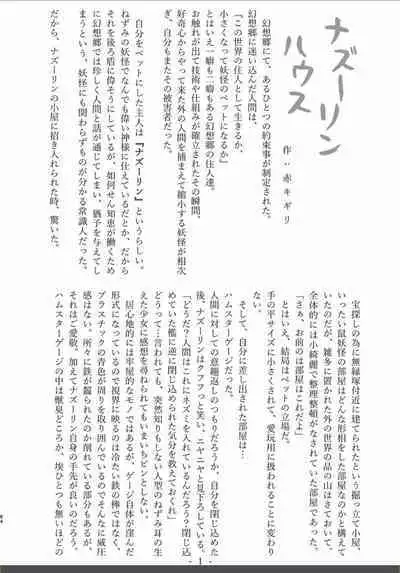 ナズーリン
ハウス
作：赤キギリ
幻想郷にて、あるひとつの約束事が制定された。
幻想郷に迷い込んだ人間は、
「この世界の住人として生きるか、
小さくなって妖怪のペットになるか」
とはいえ一癖も二癖もある幻想郷の住人達。
お触れが出て技術や仕組みが確立されたその瞬間、
好奇心からやって来た外の人間を捕まえて縮小する妖怪が相次
ぎ、自分もまたその被害者だった。
自分をペットにした主人は『ナズーリン』というらしい。
ねずみの妖怪でなんでも偉い神様に仕えているだとか、だから
それを後ろ盾に偉そうにしているが、如何せん知恵が働くため
幻想郷では珍しく人間と話が通じてしまい、猶予を与えてし
まうという、妖怪にも関わらずものが分かる常識人だった。
だから、ナズーリンの小屋に招き入れられた時、驚いた。
宝探しの為に無縁塚付近に建てられたという掘っ立て小屋。
いったい鼠妖怪の部屋はどんな形相をした部屋なのかと構えて
いたのだが、雑多に置かれた外の世界の品の山はさておいて、
全体的には小綺麗で整理整頓がなされていた部屋であった。
「さぁ、お前の部屋はこれだよ」
とはいえ、結局はペットの立場だ。
手の平サイズに小さくされて、愛玩用に扱われることに変わり
ない。
そして、自分に差し出された部屋は…
ハムスターゲージだった。
人間に対しての意趣返しのつもりだろうか、自分を閉じ込めた
後、ナズーリンはクフフっと笑い、ニヤニヤと見下ろしている。
「どうだ？人間はこれにネズミを入れているんだろう？閉じ込
めていた檻に逆に閉じ込められた気分を教えておくれ」
どうって…言われても、突然知りもしない人型のねずみ耳の生
えた少女に感想を尋ねられてもいまいちピンとしない。
居心地的には牢屋的なモノではあるが、ゲージ自体が窪んだ
形式になっているので視界に映るのは冷たい鉄の棒ではなく、
プラスチックの青色が周りを取り囲んでいるのでそんなに威圧
感はない。所々に鉄が齧られたのか削れている部分もあるが、
それはご愛敬、加えてナズーリン自身の手先が良いのだろう、
ハムスターゲージの中は獣臭どころか、埃ひとつも無いほどの
- 1 -